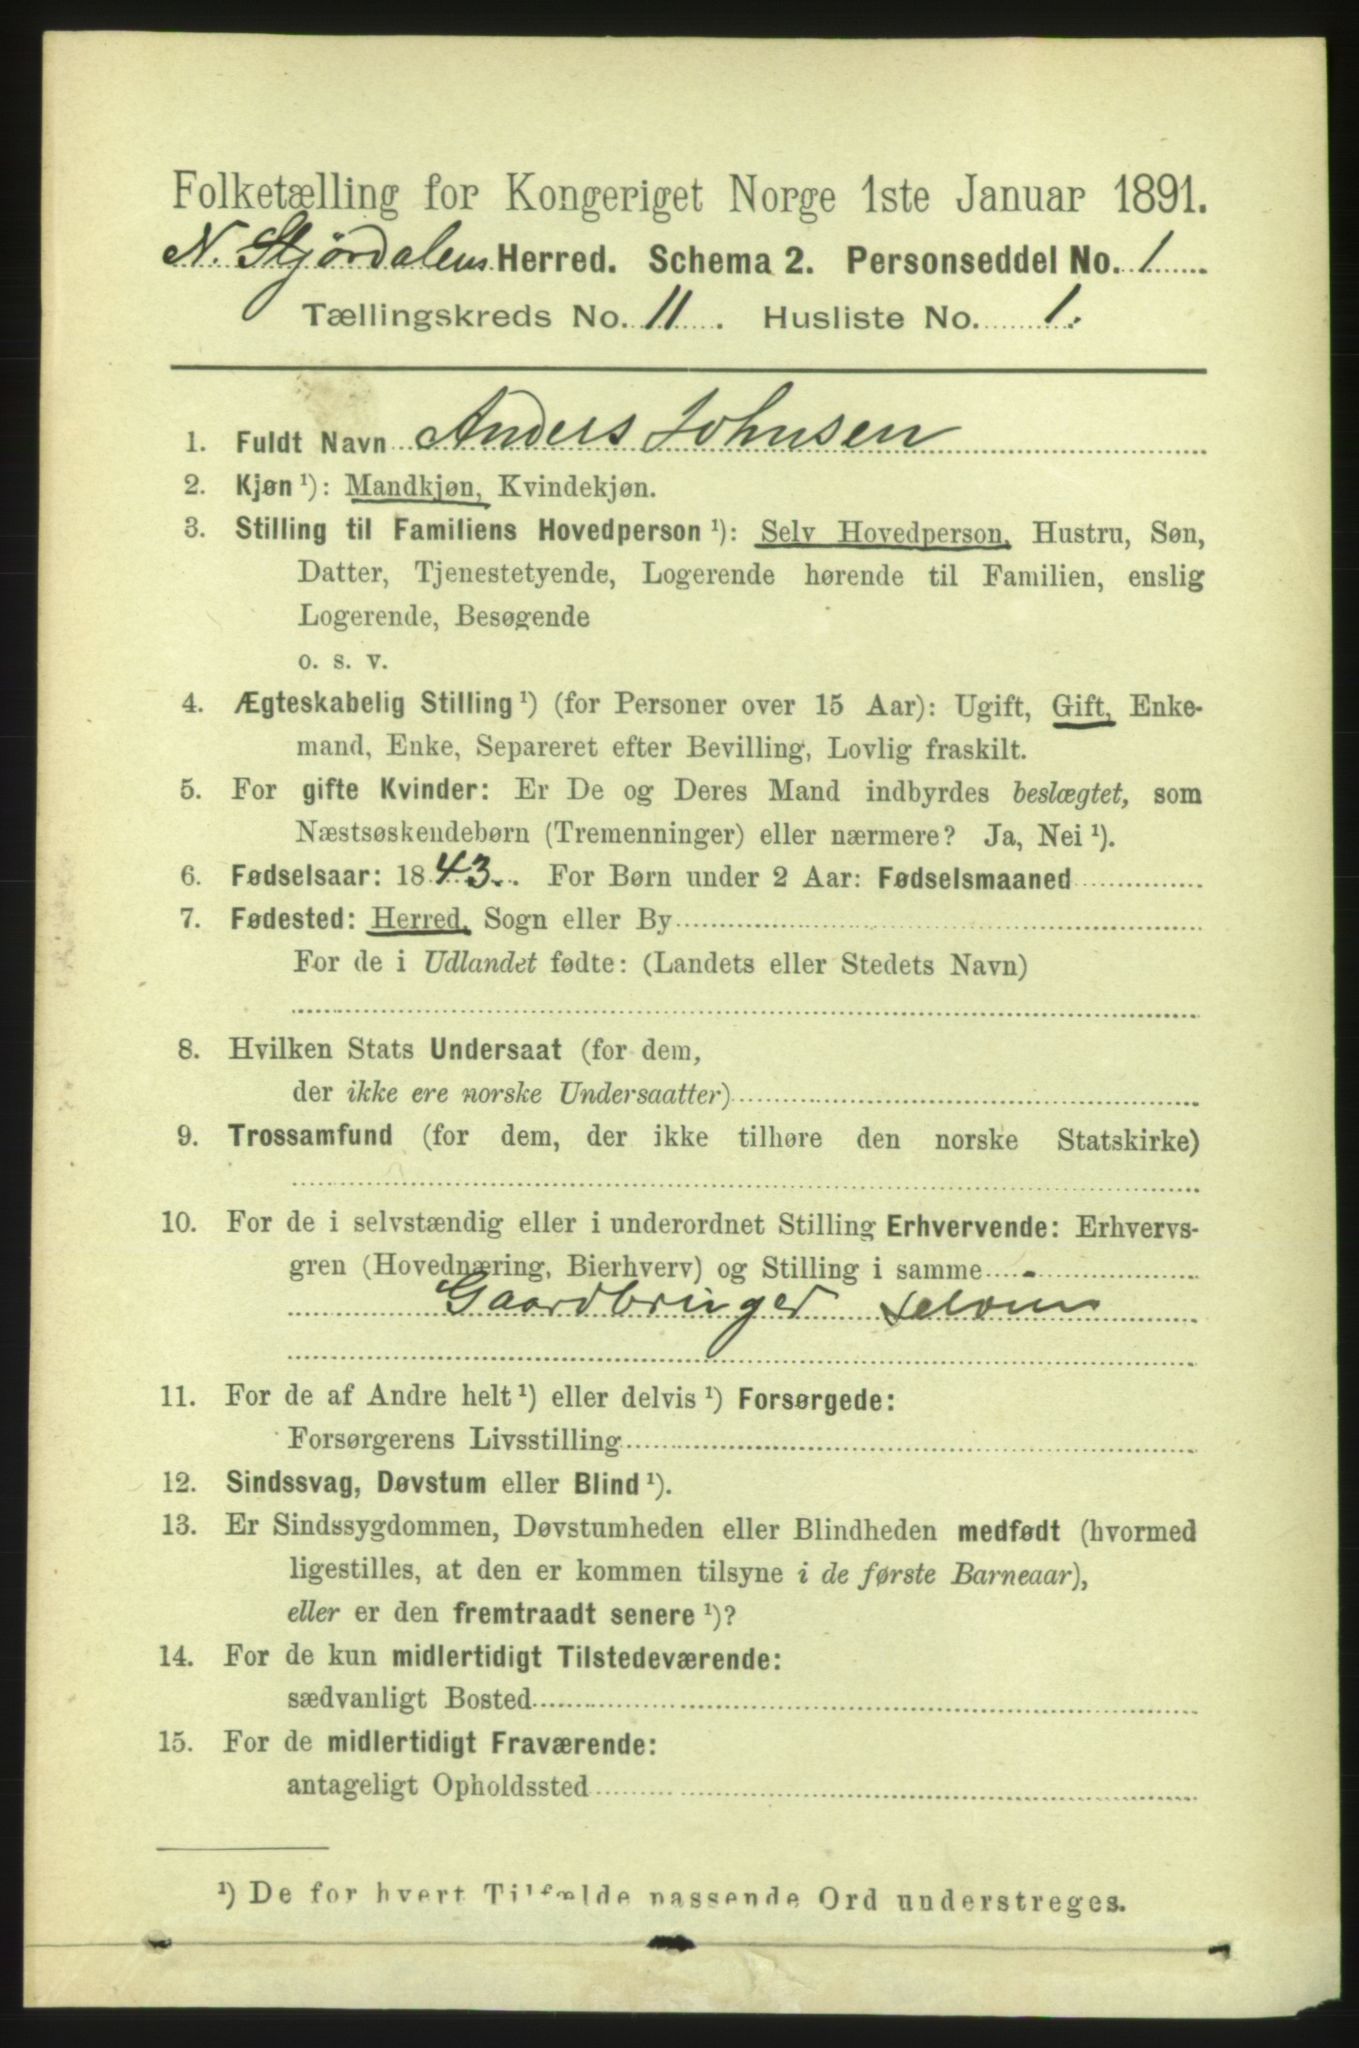 Folketælling for Kongeriget Norge 1ste Januar 1891.
N. Stjørdalens Herred. Schema 2. Personseddel No. 1
Tællingskreds No. 11. Husliste No. 1.
1. Fuldt Navn Anders Johnsen
2. Kjøn ¹): Mandkjøn, Kvindekjøn.
3. Stilling til Familiens Hovedperson ¹): Selv Hovedperson, Hustru, Søn,
Datter, Tjenestetyende, Logerende hørende til Familien, enslig
Logerende, Besøgende
o. s. v.
4. Ægteskabelig Stilling ¹) (for Personer over 15 Aar): Ugift, Gift, Enke-
mand, Enke, Separeret efter Bevilling, Lovlig fraskilt.
5. For gifte Kvinder: Er De og Deres Mand indbyrdes beslægtet, som
Næstsøskendebørn (Tremenninger) eller nærmere? Ja, Nei ¹).
6. Fødselsaar: 1843. For Børn under 2 Aar: Fødselsmaaned
7. Fødested: Herred, Sogn eller By
For de i Udlandet fødte: (Landets eller Stedets Navn)
8. Hvilken Stats Undersaat (for dem,
der ikke ere norske Undersaatter)
9. Trossamfund (for dem, der ikke tilhøre den norske Statskirke)
10. For de i selvstændig eller i underordnet Stilling Erhvervende: Erhvervs-
gren (Hovednæring, Bierhverv) og Stilling i samme
Gaardbruger
11. For de af Andre helt ¹) eller delvis ¹) Forsørgede:
Forsørgerens Livsstilling
12. Sindssvag, Døvstum eller Blind ¹).
13. Er Sindssygdommen, Døvstumheden eller Blindheden medfødt (hvormed
ligestilles, at den er kommen tilsyne i de første Barneaar),
eller er den fremtraadt senere ¹)?
14. For de kun midlertidigt Tilstedeværende:
sædvanligt Bosted
15. For de midlertidigt Fraværende:
antageligt Opholdssted
¹) De for hvert Tilfælde passende Ord understreges.